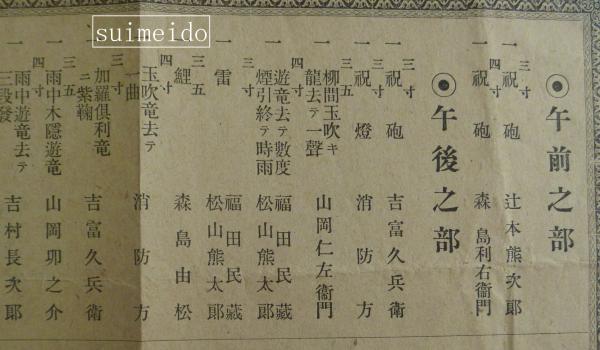 suimeido
◉午前之部
一 三寸 祝砲 辻本熊次郎
一 四寸 祝砲 森島利右衞門
◉午後之部
一 三寸 祝砲 吉富久兵衛
一 祝燈 消防方
一 三五 柳間玉吹キ
龍去テ一聲 山岡仁左衞門
一 四寸 遊竜去テ數度
煙引終テ時雨 福田民藏
松山熊太郎
一 三寸 雷 福田民藏
松山熊太郎
三五 鯉 森島由松
四寸 玉吹竜去テ
一曲 消防方
三寸 加羅倶利竜
ニ紫鞠 吉富久兵衛
一 三五 雨中木隠遊竜 山岡卯之介
一 四寸 雨中遊竜去テ
三段發 吉村長次郎